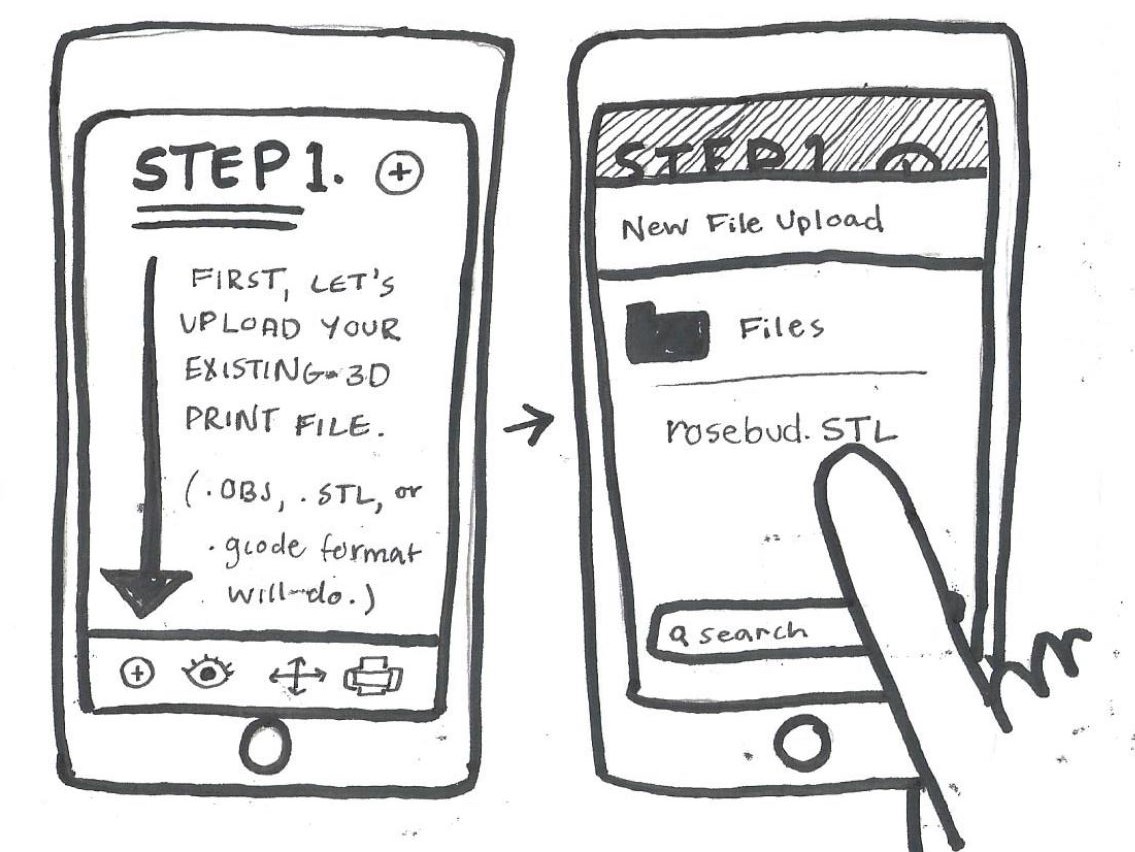 STEP 1.
FIRST, LET'S
UPLOAD YOUR
EXISTING 3D
PRINT FILE.
(.OBJ, .STL, or
.gcode format
will do.)
STEP 1
New File Upload
Files
rosebud.STL
search